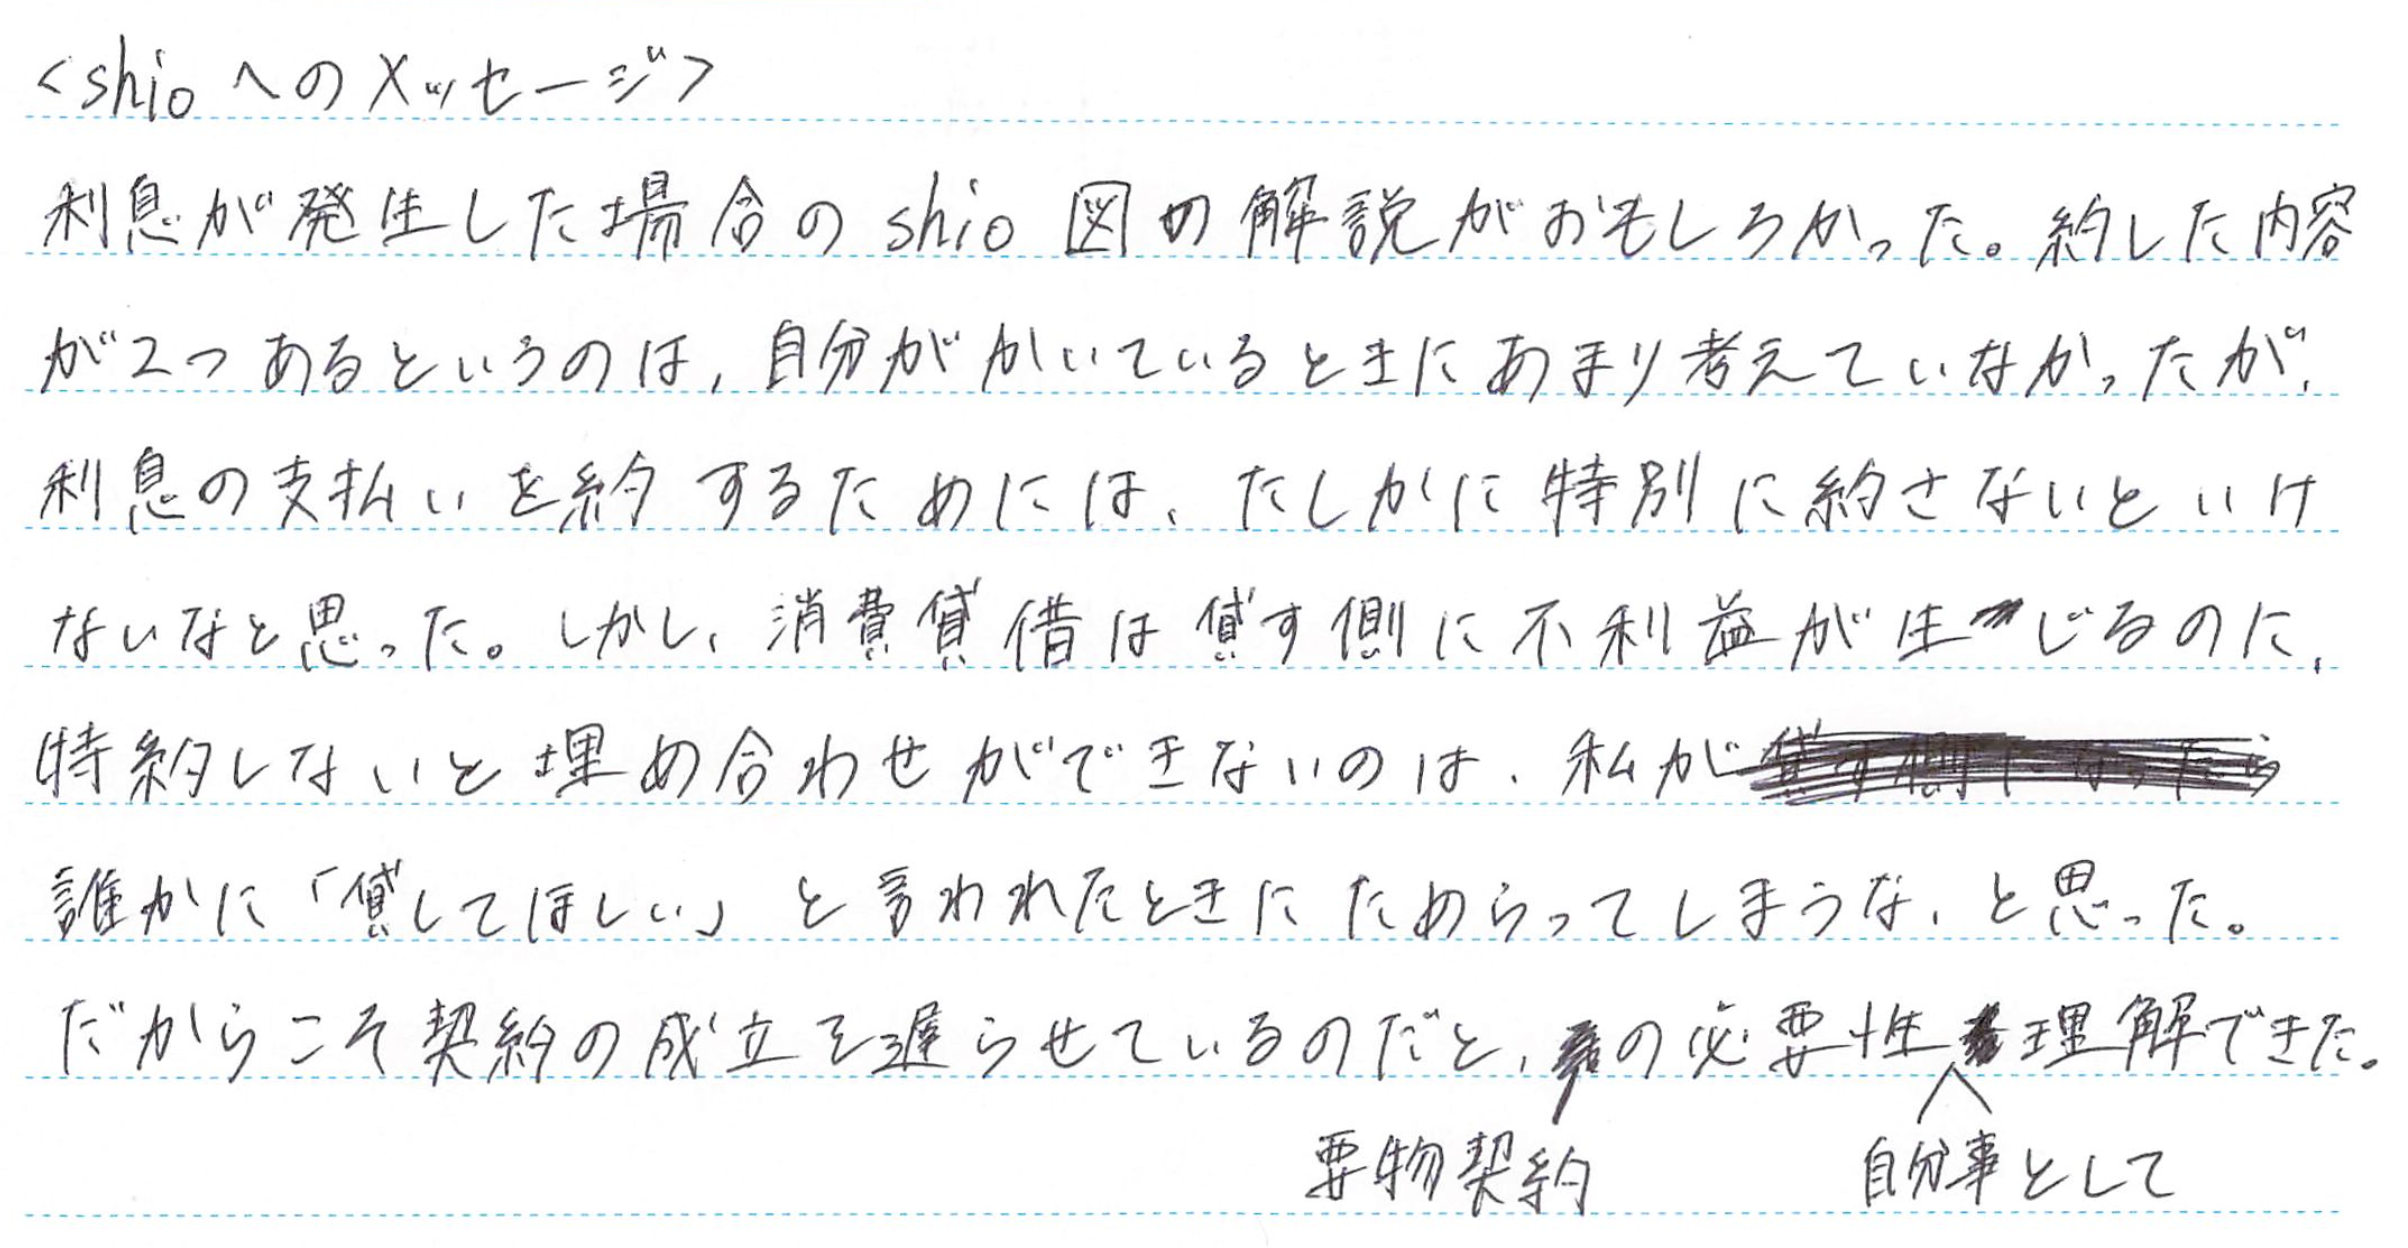 <shioへのメッセージ>
利息が発生した場合のshio図の解説がおもしろかった。約した内容
が2つあるというのは,自分がかいているときにあまり考えていなかったが、
利息の支払いを約するためには、たしかに特別に約さないといけ
ないなと思った。しかし、消費貸借は貸す側に不利益が生じるのに、
特約しないと埋め合わせができないのは、私が
誰かに「貸してほしい」と言われたときにためらってしまうな、と思った。
だからこそ契約の成立を遅らせているのだと、の必要性理解できた。
要物契約 自分事として